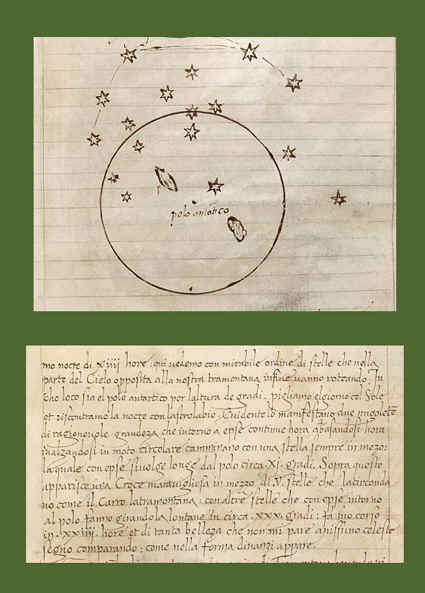 polo antarctico
mo nocte di xiiii hore: qui vedemo con mirabile ordine di stelle che nella
parte del Cielo opposita alla nostra tramontana infinite vanno roteando. In
che loco sia el polo antartico per laltura de gradi, pigliamo elgiorno col Sole
et riscontramo la nocte con lastrolabio. Evidente lo manifestano due nugolette
di ragionevole grandeza che intorno a epse continue hora abasandosi hora
inalzandosi in moto circolare camminano con una stella sempre in mezo:
laquale con epse sivolge longe dal polo circa xi. gradi. Sopra queste
apparisce una Croce maravigliosa in mezo di v. stelle che la circonda
no come il Carro latramontana: con altre stelle che con epse intorno
al polo fanno girando la lontane in circa .xxx. gradi: fa suo corso
in .xxiiii. hore et di tanta belleza che non mi pare a nissuno celeste
segno comparando: come nella forma dinanzi appare.